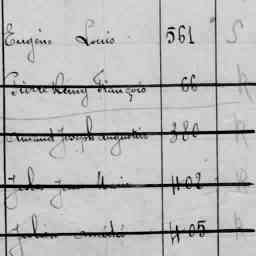 Eugène Louis 561 S
Pierre Remy François 66 R
Armand Joseph Augustin 380
Jules Jean Marie 402 R
Julien Amédée 405 R